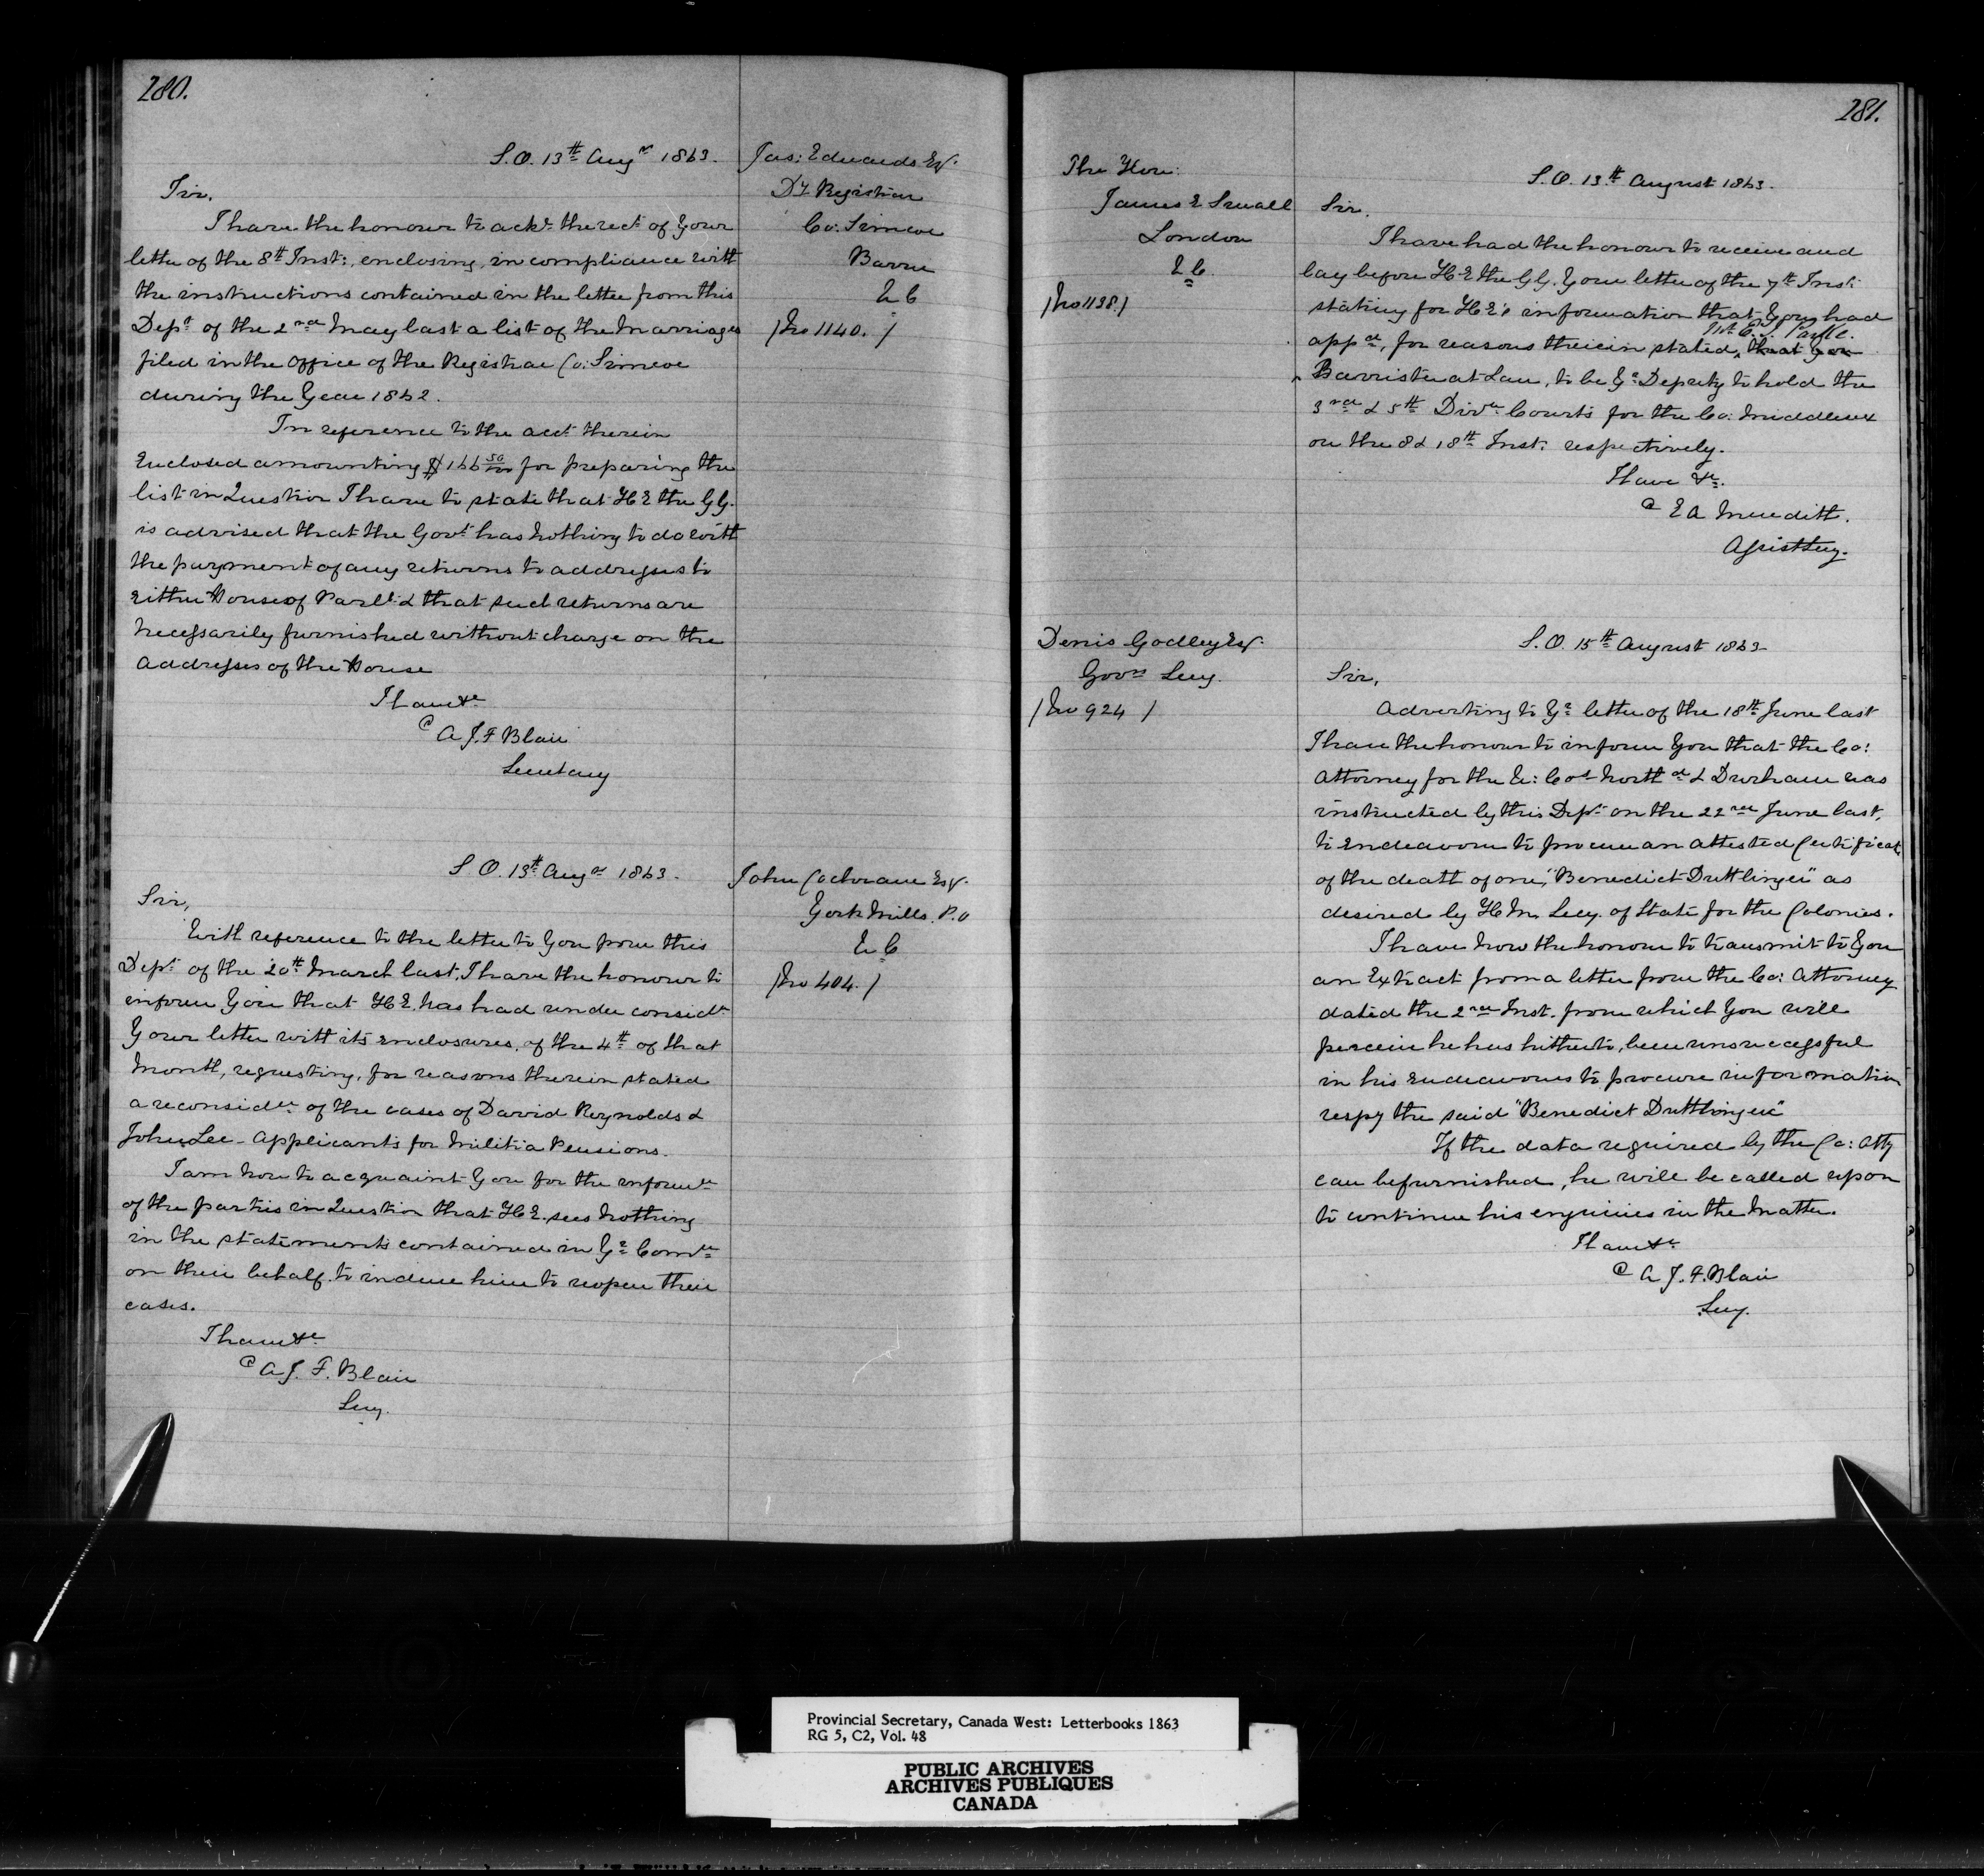 280.
S.O. 13th Augst 1863.
Sir,
I have the honour to acke. the rect. of Your
letter of the 8th Inst:, enclosing, in compliance with
the instructions contained in the letter from this
Dept. of the 2nd May last a list of the Marriages
filed in the Office of the Registrar Co: Simcoe
during the Year 1862.
In reference to the acct. therein
Enclosed amounting $166 50/100 for preparing the
list in Question I have to state that H E the G G.
is advised that the Govt. has Nothing to do with
the payment of any returns to addresses to
Either House of Parlt. & that such returns are
Necessarily furnished without charge on the
Addresses of the House
I have &c
A J. F Blair
Secretary
Jas: Edwards Esq.
Dy Registrar
Co: Simcoe
Barrie
U C
/No 1140. /
S O. 13th Augst 1863.
Sir,
With reference to the letter to You from this
Dept. of the 20th March last, I have the honour to
inform You that H E. has had under considn.
Your letter with its enclosures, of the 4th of that
Month, requesting, for reasons therein stated
a reconsidn. of the cases of David Reynolds &
John Lee - Applicants for Militia Pensions.
I am Now to acquaint You for the informn.
of the parties in Question that H E. sees Nothing
in the statements contained in Yr. Comn.
on their behalf to induce him to reopen their
cases.
I have &c
A J. F. Blair
Secy.
John Cochrane Esq.
York Mills. P.O
U C
/No 404. /
281.
The Hon:
James E Small
London
U C.
/No 1138. /
S. O. 13th August 1863.
Sir,
I have had the honour to receive and
lay before H E the G G. Your letter of the 7th Inst:
stating for H E's information that You had
appd., for reasons therein stated, that you
Barrister at Law, to be Yr. Deputy to hold the
3rd & 5th Divn. Courts for the Co: Middlesex
on the 8 & 18th Inst: respectively.
I have &c.
E A Meredith.
Assist Secy.
Denis Godley Esq.
Govrs Secy.
/No 924 /
S. O. 15th August 1863
Sir,
Adverting to Yr. letter of the 18th June last
I have the honour to inform You that the Co:
Attorney for the U: Cos. Northd. & Durham was
instructed by this Dept. on the 22nd June last,
to Endeavour to procure an attested Certificate
of the death of one, "Benedict Duttlinger" as
desired by H M. Secy. of State for the Colonies.
I have Now the honour to transmit to You
an Extract from a letter from the Co: Attorney
dated the 2nd Inst. from which You will
perceive he has hitherto, been unsuccessful
in his Endeavours to procure information
respg the said "Benedict Duttlinger"
If the data required by the Co: Atty
can be furnished, he will be called upon
to continue his enquiries in the Matter.
I have &c
A J. F. Blair
Secy.
Provincial Secretary, Canada West: Letterbooks 1863
RG 5, C2, Vol. 48
PUBLIC ARCHIVES
ARCHIVES PUBLIQUES
CANADA